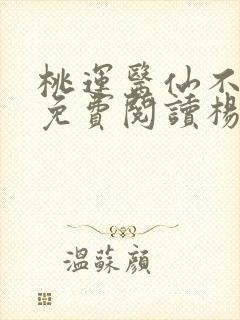 桃運醫仙不
免費閱讀楊
溫蘇顏